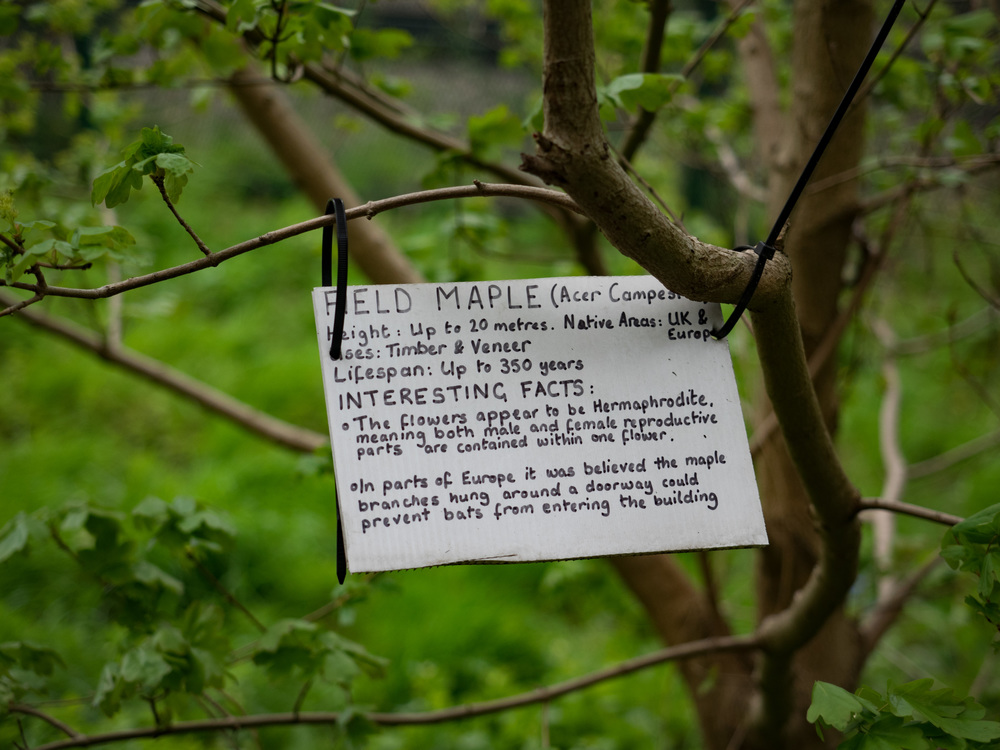 FIELD MAPLE (Acer Campest
Height: Up to 20 metres. Native Areas: UK &
Europe
Uses: Timber & Veneer
Lifespan: Up to 350 years
INTERESTING FACTS:
• The flowers appear to be Hermaphrodite,
meaning both male and female reproductive
parts are contained within one flower.
• In parts of Europe it was believed the maple
branches hung around a doorway could
prevent bats from entering the building